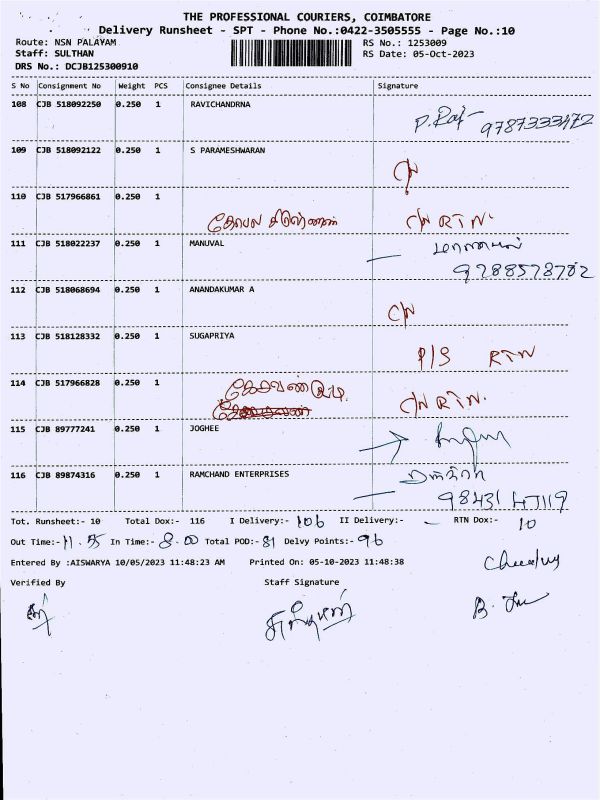 THE PROFESSIONAL COURIERS, COIMBATORE
Delivery Runsheet - SPT - Phone No.:0422-3505555 - Page No.:10
Route: NSN PALAYAM RS No.: 1253009
Staff: SULTHAN RS Date: 05-Oct-2023
DRS No.: DCJB125300910
S No Consignment No Weight PCS Consignee Details Signature
108 CJB 518092250 0.250 1 RAVICHANDRNA P. Raj 9787333472
109 CJB 518092122 0.250 1 S PARAMESHWARAN C/N
110 CJB 517966861 0.250 1 C/N RTN.
111 CJB 518022237 0.250 1 MANUVAL 9288578782
112 CJB 518068694 0.250 1 ANANDAKUMAR A C/N
113 CJB 518128332 0.250 1 SUGAPRIYA P/S RTN
114 CJB 517966828 0.250 1 C/N RTN.
115 CJB 89777241 0.250 1 JOGHEE
116 CJB 89874316 0.250 1 RAMCHAND ENTERPRISES 98431 47119
Tot. Runsheet:- 10 Total Dox:- 116 I Delivery:- 106 II Delivery:- - RTN Dox:- 10
Out Time:- 11.55 In Time:- 8.00 Total POD:- 81 Delvy Points:- 96
Entered By :AISWARYA 10/05/2023 11:48:23 AM Printed On: 05-10-2023 11:48:38
Verified By Staff Signature